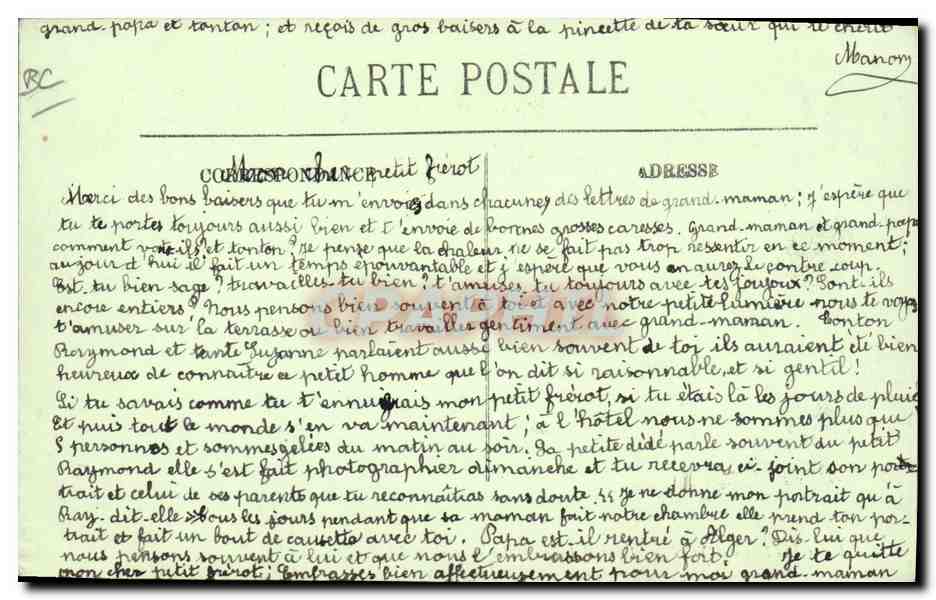 grand-papa et tonton ; et reçois de gros baisers à la pincette de ta sœur qui te chérit
Manon
RC
CARTE POSTALE
CORRESPONDANCE
ADRESSE
Mon cher petit frérot
Merci des bons baisers que tu m'envoies dans chacunes des lettres de grand-maman ; j'espère que
tu te portes toujours aussi bien et t'envoie de bonnes grosses caresses. Grand-maman et grand-papa
comment vont-ils ? et tonton ? Je pense que la chaleur ne se fait pas trop ressentir en ce moment ;
aujourd'hui il fait un temps épouvantable et j'espère que vous en aurez le contre-coup.
Est-tu bien sage ? travailles-tu bien ? t'amuses-tu toujours avec tes joujoux ? Sont-ils
encore entiers ? Nous pensons bien souvent à toi et avec notre petite lumière nous te voyons
t'amuser sur la terrasse ou bien travailler gentiment avec grand-maman. Tonton
Raymond et tante Suzanne parlaient aussi bien souvent de toi ils auraient été bien
heureux de connaître ce petit homme que l'on dit si raisonnable et si gentil !
Si tu savais comme tu t'ennuierais mon petit frérot, si tu étais là les jours de pluie
Et puis tout le monde s'en va maintenant ; à l'hôtel nous ne sommes plus que
5 personnes et sommes gelées du matin au soir. La petite dédé parle souvent du petit
Raymond elle s'est fait photographier dimanche et tu recevras ci-joint son por-
trait et celui de ses parents que tu reconnaîtras sans doute. "Je ne donne mon portrait qu'à
Ray-dit-elle" Tous les jours pendant que sa maman fait notre chambre elle prend ton por-
trait et fait un bout de causette avec toi. Papa est-il rentré à Alger ? Dis-lui que
nous pensons souvent à lui et que nous l'embrassons bien fort. Je te quitte
mon cher petit frérot ; Embrasses bien affectueusement pour moi grand-maman